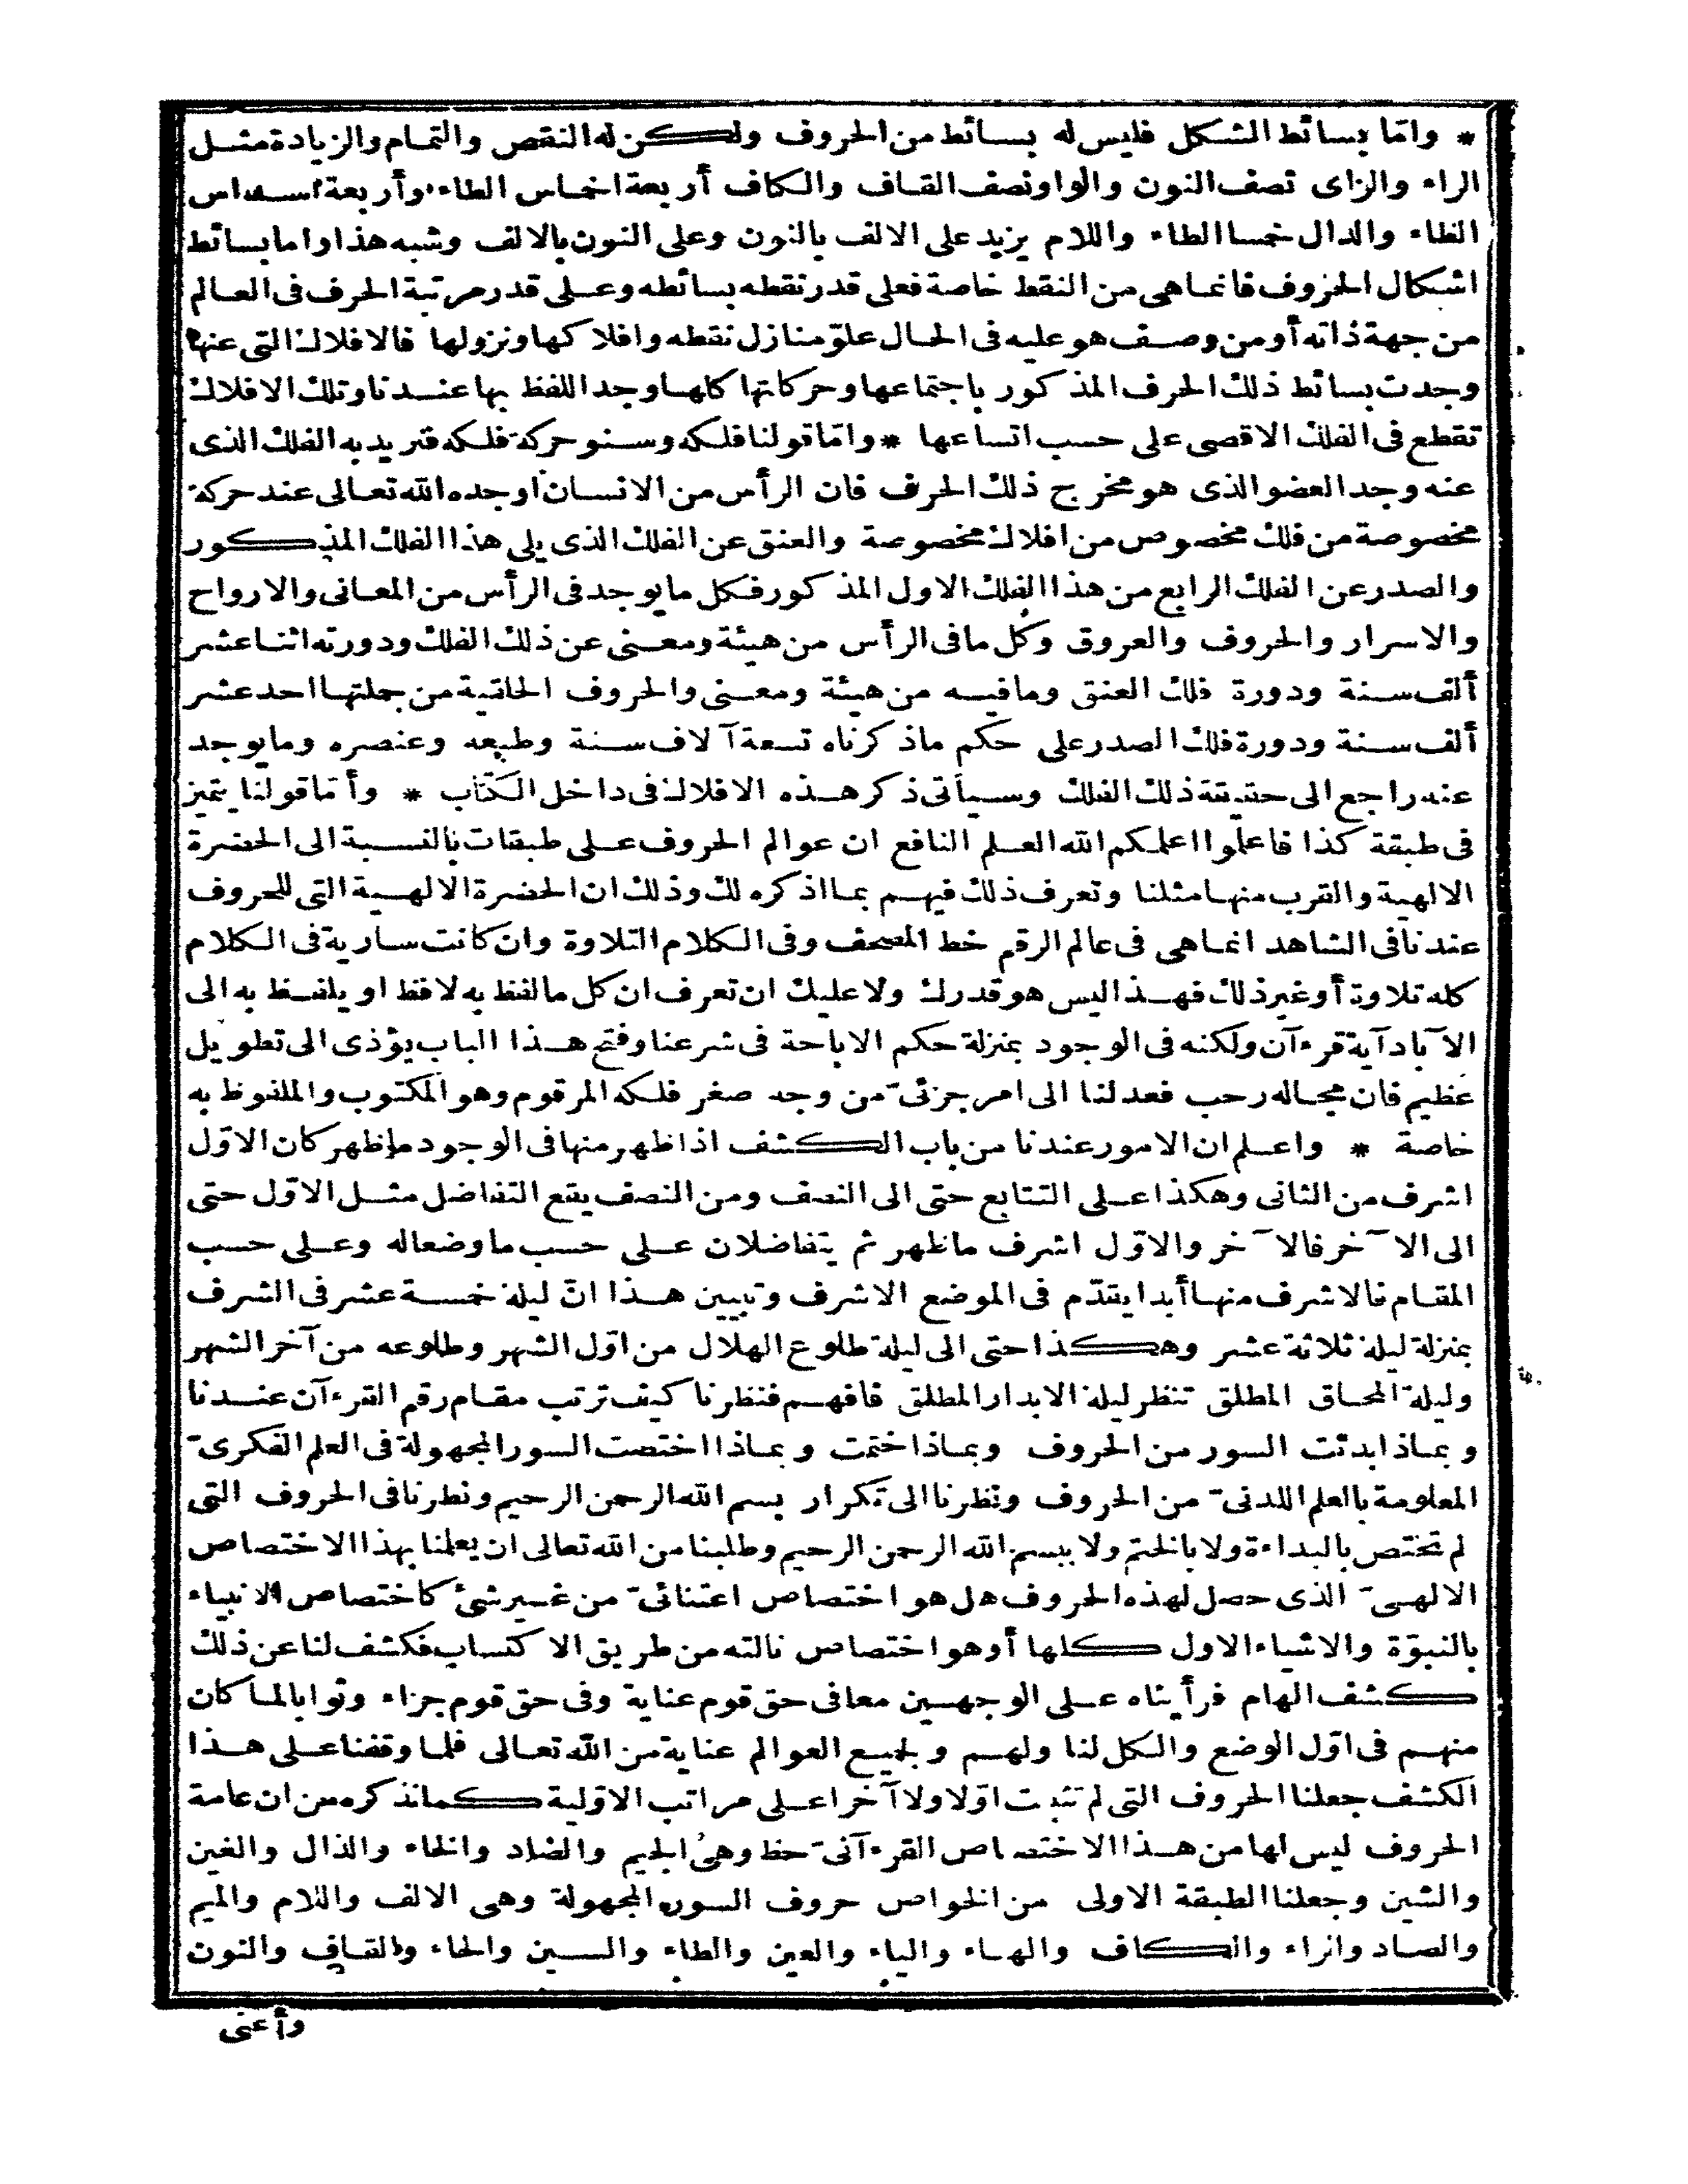 * وامّا بسائط الشكل فليس له بسائط من الحروف ولكن له النقص والتمام والزيادة مثل
الراء والزاى نصف النون والواو نصف القاف والكاف أربعة اخماس الطاء وأربعة اسداس
الظاء والدال خمسا الطاء واللام يزيد على الالف بالنون وعلى النون بالالف وشبه هذا واما بسائط
اشكال الحروف فانما هى من النقط خاصة فعلى قدر نقطه بسائطه وعلى قدر مرتبة الحرف فى العالم
من جهة ذاته أو من وصف هو عليه فى الحال علوّ منازل نقطه وافلاكها ونزولها فالافلاك التى عنها
وجدت بسائط ذلك الحرف المذكور باجتماعها وحركاتها كلها وجد اللفظ بها عندنا وتلك الافلاك
تقطع فى الفلك الاقصى على حسب اتساعها * وامّا قولنا فلكه وسنو حركة فلكه فنريد به الفلك الذى
عنه وجد العضو الذى هو مخرج ذلك الحرف فان الرأس من الانسان اوجده الله تعالى عند حركة
مخصوصة من فلك مخصوص من افلاك مخصوصة والعنق عن الفلك الذى يلى هذا الفلك المذكور
والصدر عن الفلك الرابع من هذا الفلك الاول المذكور فكل ما يوجد فى الرأس من المعانى والارواح
والاسرار والحروف والعروق وكل ما فى الرأس من هيئة ومعنى عن ذلك الفلك ودورته اثنا عشر
ألف سنة ودورة فلك العنق وما فيه من هيئة ومعنى والحروف الحلقية من جملتها احد عشر
ألف سنة ودورة فلك الصدر على حكم ما ذكرناه تسعة آلاف سنة وطبعه وعنصره وما يوجد
عنه راجع الى حقيقة ذلك الفلك وسيأتى ذكر هذه الافلاك فى داخل الكتاب * وأمّا قولنا يتميز
فى طبقة كذا فاعلموا اعلمكم الله العلم النافع ان عوالم الحروف على طبقات بالنسبة الى الحضرة
الالهية والقرب منها مثلنا وتعرف ذلك فيهم بما اذكره لك وذلك ان الحضرة الالهية التى للحروف
عندنا فى الشاهد انما هى فى عالم الرقم خط المصحف وفى الكلام التلاوة وان كانت سارية فى الكلام
كله تلاوة أو غير ذلك فهذا ليس هو قدرك ولا عليك ان تعرف ان كل ما لفظ به لافظ او يلفظ به الى
الآباد آية قرءآن ولكنه فى الوجود بمنزلة حكم الاباحة فى شرعنا وفتح هذا الباب يؤدى الى تطويل
عظيم فان مجاله رحب فعدلنا الى امر جزئىّ من وجه صغر فلكه المرقوم وهو المكتوب والملفوظ به
خاصة * واعلم ان الامور عندنا من باب الكشف اذا ظهر منها فى الوجود ما ظهر كان الاوّل
اشرف من الثانى وهكذا على التتابع حتى الى النصف ومن النصف يقع التفاضل مثل الاوّل حتى
الى الآخر فالآخر والاوّل اشرف ما ظهر ثم يتفاضلان على حسب ما وضعا له وعلى حسب
المقام فالاشرف منها أبدا يقدّم فى الموضع الاشرف وتبيين هذا انّ ليلة خمسة عشر فى الشرف
بمنزلة ليلة ثلاثة عشر وهكذا حتى الى ليلة طلوع الهلال من اوّل الشهر وطلوعه من آخر الشهر
وليلة المحاق المطلق تنظر ليلة الابدار المطلق فافهم فنظرنا كيف ترتب مقام رقم القرءآن عندنا
وبماذا بدئت السور من الحروف وبماذا ختمت وبماذا اختصت السور المجهولة فى العلم الفكرىّ
المعلومة بالعلم اللدنىّ من الحروف ونظرنا الى تكرار بسم الله الرحمن الرحيم ونظرنا فى الحروف التى
لم تختص بالبداءة ولا بالختم ولا ببسم الله الرحمن الرحيم وطلبنا من الله تعالى ان يعلمنا بهذا الاختصاص
الالهىّ الذى حصل لهذه الحروف هل هو اختصاص اعتنائىّ من غير شئ كاختصاص الانبياء
بالنبوّة والاشياء الاول كلها أو هو اختصاص نالته من طريق الاكتساب فكشف لنا عن ذلك
كشف الهام فرأيناه على الوجهين معا فى حق قوم عناية وفى حق قوم جزاء وثوابا لما كان
منهم فى اوّل الوضع والكل لنا ولهم ولجميع العوالم عناية من الله تعالى فلما وقفنا على هذا
الكشف جعلنا الحروف التى لم تثبت اوّلا ولا آخرا على مراتب الاوّلية كما نذكره من ان عامة
الحروف ليس لها من هذا الاختصاص القرءآنىّ حظ وهى الجيم والضاد والخاء والذال والغين
والشين وجعلنا الطبقة الاولى من الخواص حروف السور المجهولة وهى الالف واللام والميم
والصاد والراء والكاف والهاء والياء والعين والطاء والسين والحاء والقاف والنون
وأعنى